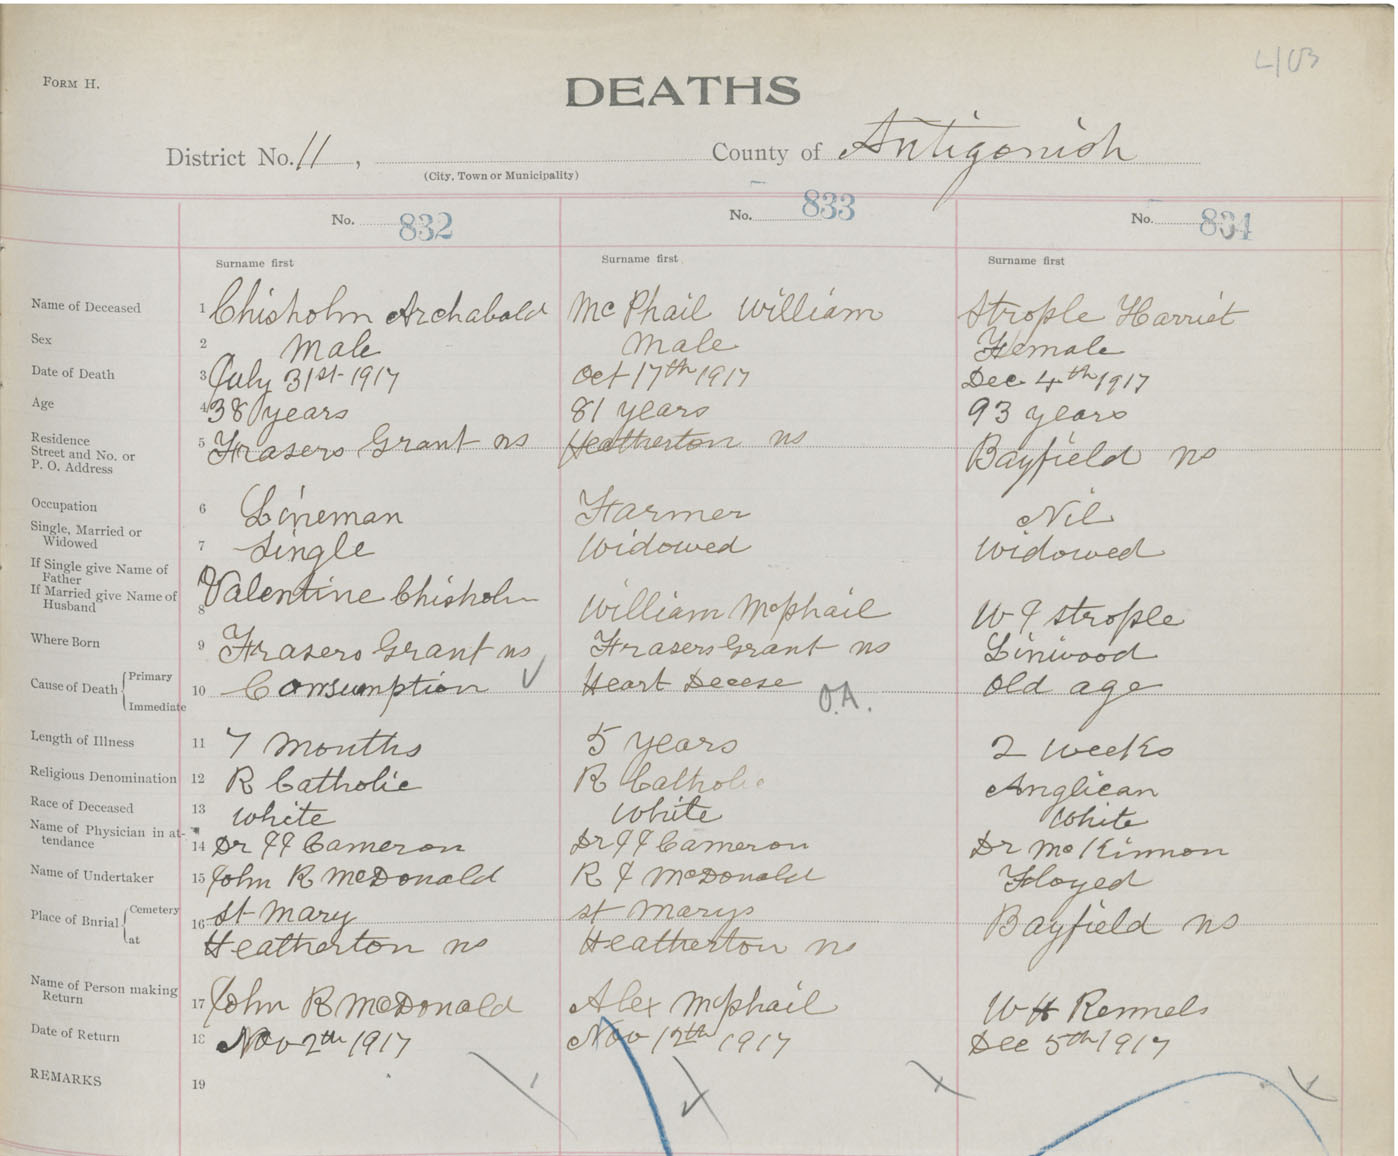 FORM H.
DEATHS
District No. 11 , County of Antigonish
(City, Town or Municipality)
No. 832 No. 833 No. 834
Surname first Surname first Surname first
Name of Deceased 1 Chisholm Archabald McPhail William Strople Harriet
Sex 2 Male Male Female
Date of Death 3 July 31st 1917 Oct 17th 1917 Dec 4th 1917
Age 4 38 years 81 years 93 years
Residence
Street and No. or
P. O. Address 5 Frasers Grant ns Heatherton ns Bayfield ns
Occupation 6 Lineman Farmer Nil
Single, Married or
Widowed 7 Single Widowed Widowed
If Single give Name of
Father
If Married give Name of
Husband 8 Valentine Chisholm William McPhail W J Strople
Where Born 9 Frasers Grant ns Frasers Grant ns Linwood
Cause of Death { Primary
Immediate 10 Consumption Heart Decese O.A. Old age
Length of Illness 11 7 Months 5 years 2 weeks
Religious Denomination 12 R Catholic R Catholic Anglican
Race of Deceased 13 White White White
Name of Physician in at-
tendance 14 Dr JJ Cameron Dr JJ Cameron Dr McKinnon
Name of Undertaker 15 John R McDonald R J McDonald Floyed
Place of Burial { Cemetery 16 St Mary St Marys Bayfield ns
at Heatherton ns Heatherton ns
Name of Person making
Return 17 John R McDonald Alex McPhail W H Rennels
Date of Return 18 Nov 2th 1917 Nov 12th 1917 Dec 5th 1917
REMARKS 19